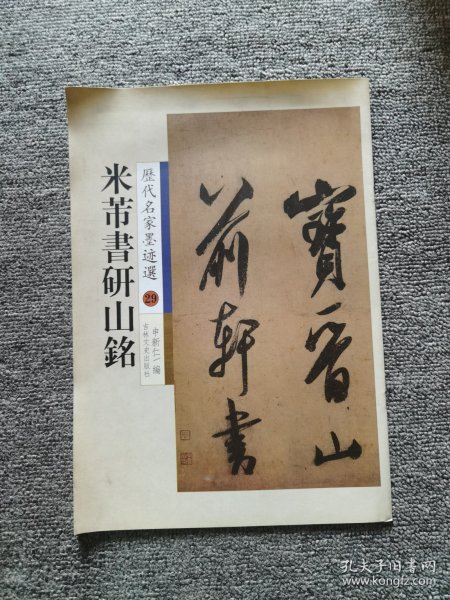 米芾書研山銘
歷代名家墨迹選
29
申新仁 編
吉林文史出版社
寶晉山
前軒書
孔夫子旧书网
www.kongfz.com